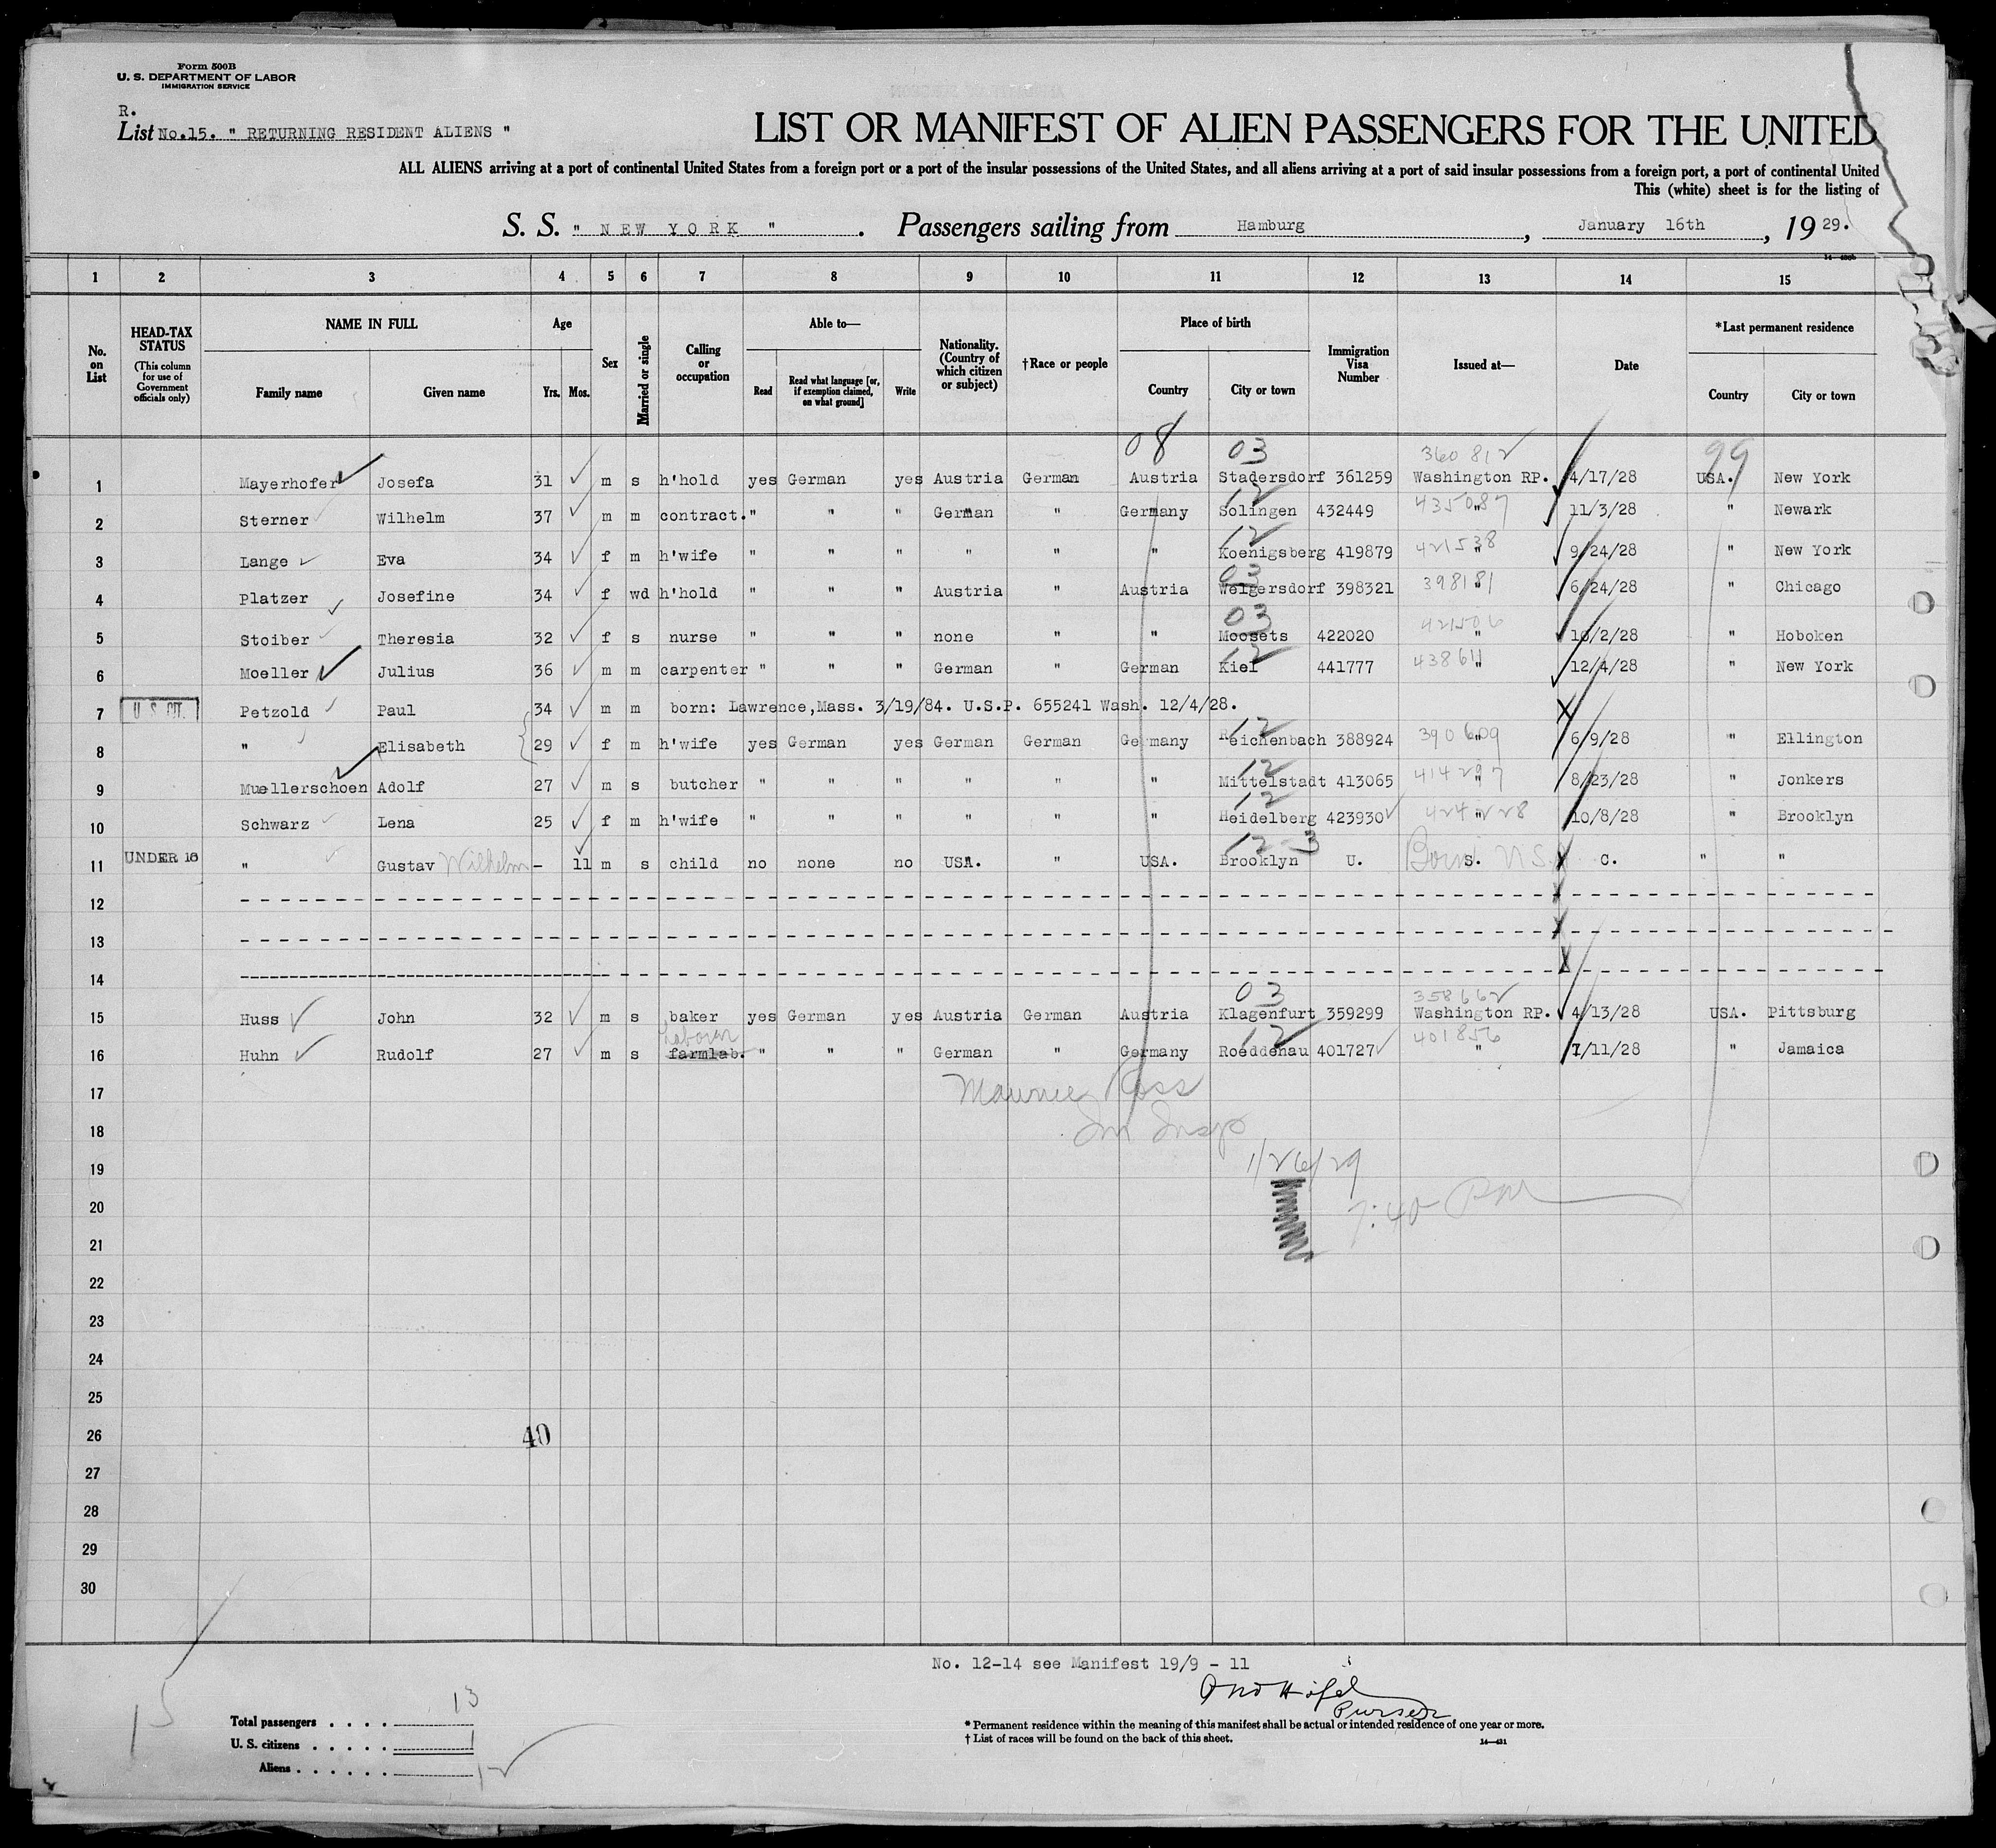 Form 500B
U. S. DEPARTMENT OF LABOR
IMMIGRATION SERVICE
R.
List No.15. " RETURNING RESIDENT ALIENS "
LIST OR MANIFEST OF ALIEN PASSENGERS FOR THE UNITED
ALL ALIENS arriving at a port of continental United States from a foreign port or a port of the insular possessions of the United States, and all aliens arriving at a port of said insular possessions from a foreign port, a port of continental United
This (white) sheet is for the listing of
S. S. " NEW YORK " . Passengers sailing from Hamburg , January 16th , 19 29.
1 2 3 4 5 6 7 8 9 10 11 12 13 14 15
No. on List HEAD-TAX STATUS (This column for use of Government officials only) NAME IN FULL Family name Given name Age Yrs. Mos. Sex Married or single Calling or occupation Able to— Read Read what language [or, if exemption claimed, on what ground] Write Nationality. (Country of which citizen or subject) †Race or people Place of birth Country City or town Immigration Visa Number Issued at— Date *Last permanent residence Country City or town
08 03 360812 99
1 Mayerhofer Josefa 31 m s h'hold yes German yes Austria German Austria Stadersdorf 361259 Washington RP. 4/17/28 USA. New York
12 435087
2 Sterner Wilhelm 37 m m contract. " " " German " Germany Solingen 432449 " 11/3/28 " Newark
12 421538
3 Lange Eva 34 f m h'wife " " " " " " Koenigsberg 419879 " 9/24/28 " New York
03 398181
4 Platzer Josefine 34 f wd h'hold " " " Austria " Austria Welgersdorf 398321 " 6/24/28 " Chicago
03 421506
5 Stoiber Theresia 32 f s nurse " " " none " " Moosets 422020 " 10/2/28 " Hoboken
12 438611
6 Moeller Julius 36 m m carpenter " " " German " German Kiel 441777 " 12/4/28 " New York
7 U. S. CIT. Petzold Paul 34 m m born: Lawrence,Mass. 3/19/84. U.S.P. 655241 Wash. 12/4/28.
12 390609
8 " Elisabeth 29 f m h'wife yes German yes German German Germany Reichenbach 388924 " 6/9/28 " Ellington
12 414297
9 Muellerschoen Adolf 27 m s butcher " " " " " " Mittelstadt 413065 " 8/23/28 " Jonkers
12 424228
10 Schwarz Lena 25 f m h'wife " " " " " " Heidelberg 423930 " 10/8/28 " Brooklyn
12-3
11 UNDER 16 " Gustav Wilhelm - 11 m s child no none no USA. " USA. Brooklyn U. S. Born U.S. C. " "
12
13
14
03 358662
15 Huss John 32 m s baker yes German yes Austria German Austria Klagenfurt 359299 Washington RP. 4/13/28 USA. Pittsburg
laborer 12 401856
16 Huhn Rudolf 27 m s farmlab. " " " German " Germany Roeddenau 401727 " 7/11/28 " Jamaica
17 Maurice Ross
18 Im Insp
19 1/26/29
20 7:40 PM
21
22
23
24
25
26 40
27
28
29
30
No. 12-14 see Manifest 19/9 - 11
Purser
15
Total passengers . . . . 13
U. S. citizens . . . . . 1
Aliens . . . . . . 12
* Permanent residence within the meaning of this manifest shall be actual or intended residence of one year or more.
† List of races will be found on the back of this sheet.
14—431